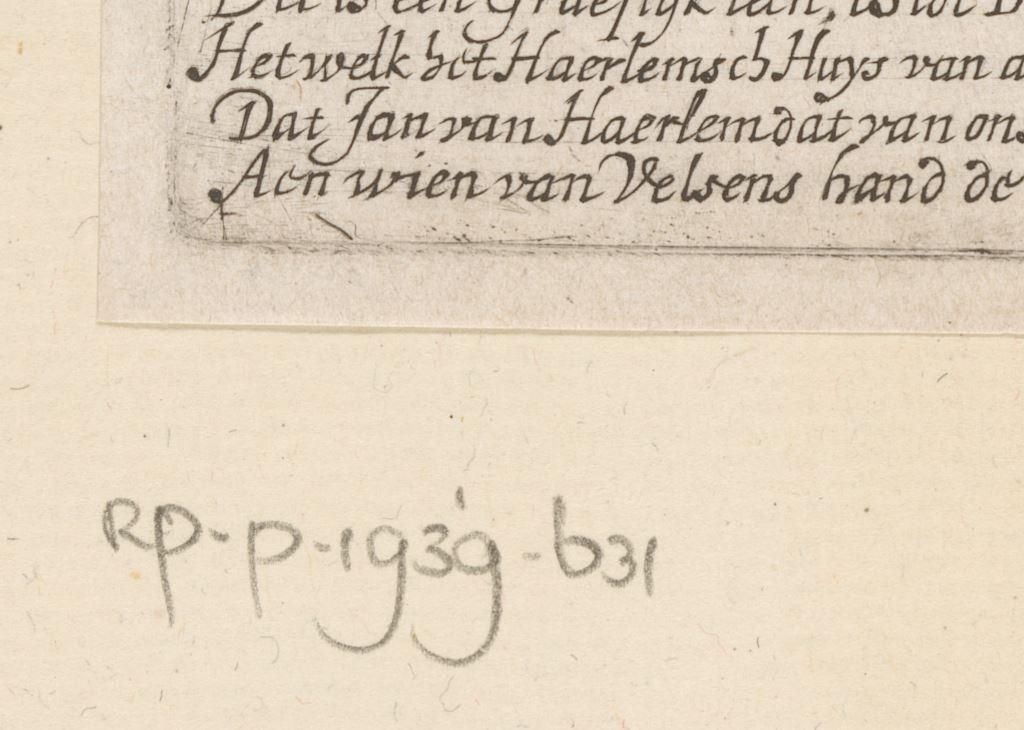 Dit is een Graeflijk
Het welk het Haerlemsch Huys van
Dat Jan van Haerlem dat van ons
Aen wien van Velsens hand de
RP-P-1939-631